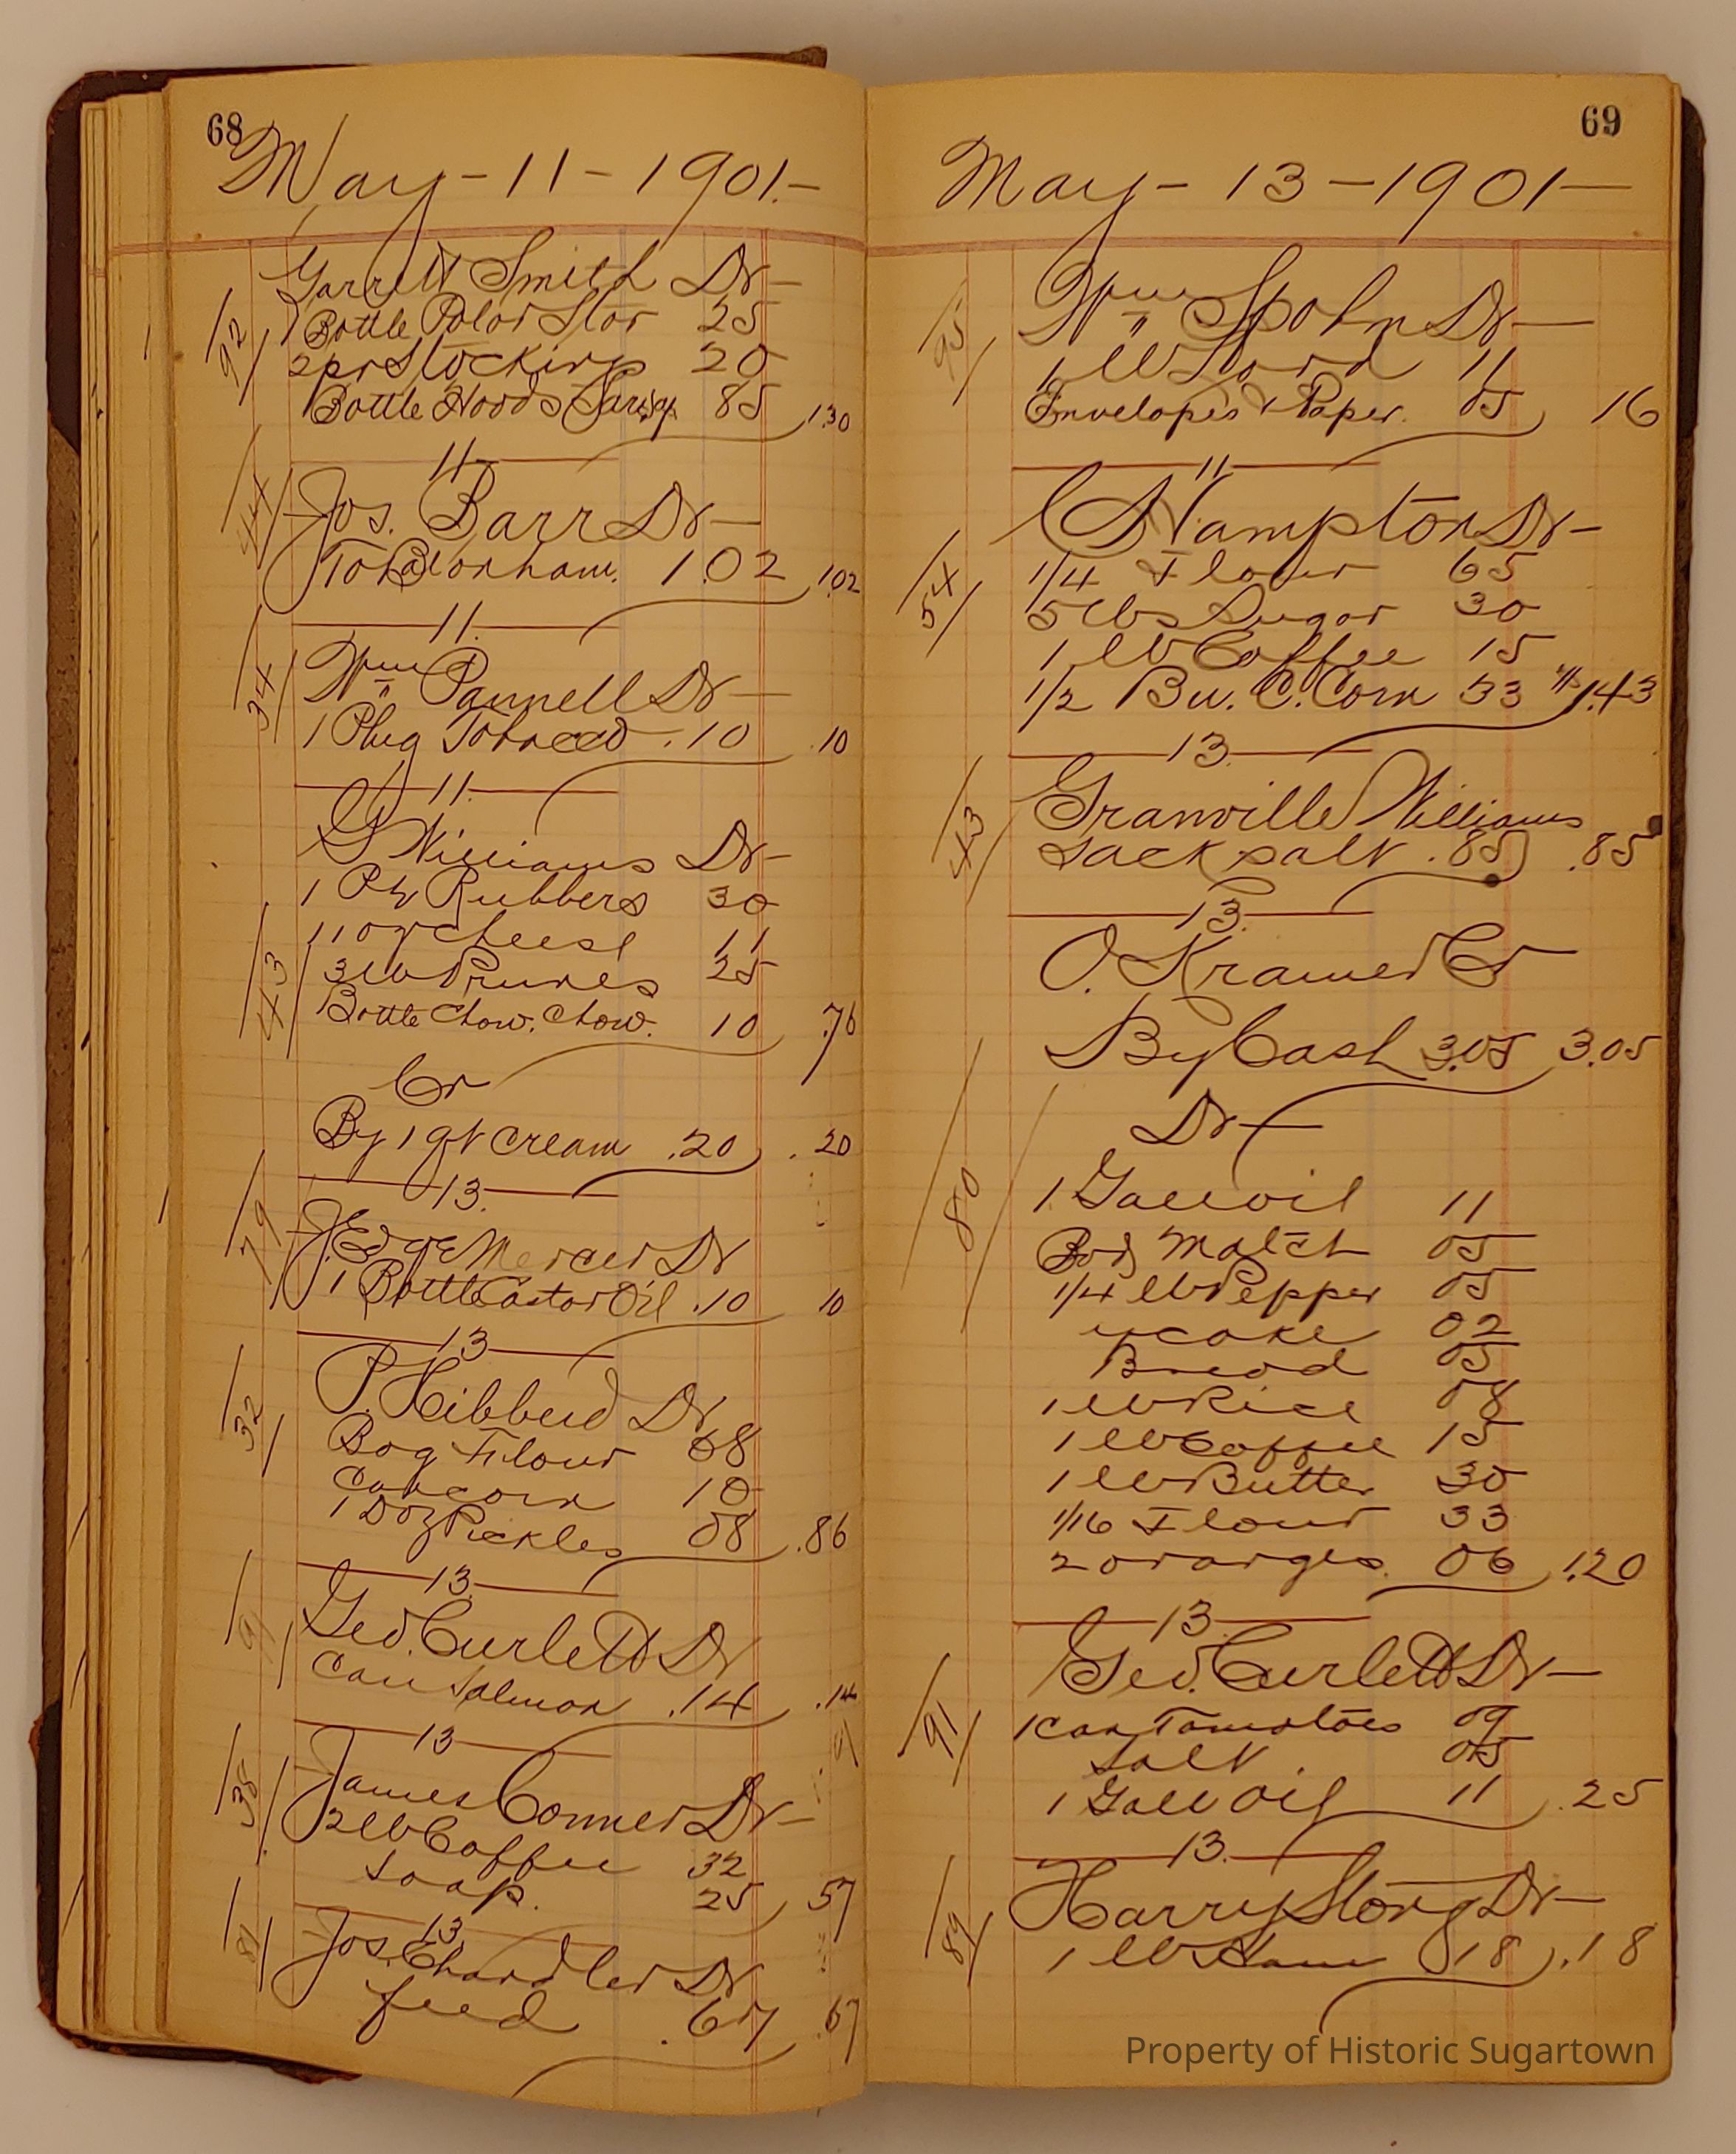 68
May - 11 - 1901. -
92
Garrett Smith Dr -
1 Bottle Polar Star 25
2 pr Stockings 20
1 Bottle Hoods Sarsp. 85 1.30
11
44
Jos. Barr Dr -
To Bal on ham. 1.02 1.02
11.
34
Wm Pannell Dr -
1 Plug Tobacco .10 .10
11.
43
G Williams Dr -
1 Pr Rubbers 30
11 oz cheese 11
3 lb Prunes 25
Bottle Chow. Chow. 10 .76
Cr
By 1 qt cream .20 .20
13.
79
J. Edge Mercer Dr
1 Bottle Castor Oil .10 10
13
32
P. Hibberd Dr
Bag Flour 68
Can corn 10
1 Doz Pickles 08 .86
13.
91
Geo. Curlett Dr
Can Salmon .14 .14
13
38
James Conner Dr -
2 lb Coffee 32
Soap. 25 57
13
81
Jos. Chandler Dr
feed .67 .67
69
May - 13 - 1901 -
95
Wm Spohn Dr -
1 lb Lard 11
Envelopes & Paper. 05 16
11
54
Hampton Dr -
1/4 Flour 65
5 lbs Sugar 30
1 lb Coffee 15
1/2 Bu. C. Corn 33 1.43
13.
43
Granville Williams
Sack salt .85 .85
13.
80
O. Kramer Cr
By Cash 3.05 3.05
Dr -
1 Gall oil 11
Box Match 05
1/4 lb Pepper 05
ycake 02
Bread 05
1 lb Rice 08
1 lb Coffee 15
1 lb Butter 30
1/16 Flour 33
2 oranges. 06 1.20
13.
91
Geo. Curlett Dr -
1 can Tomatoes 09
Salt 05
1 Gall Oil 11 .25
13.
89
Harry Stong Dr -
1 lb Ham 18 .18
Property of Historic Sugartown